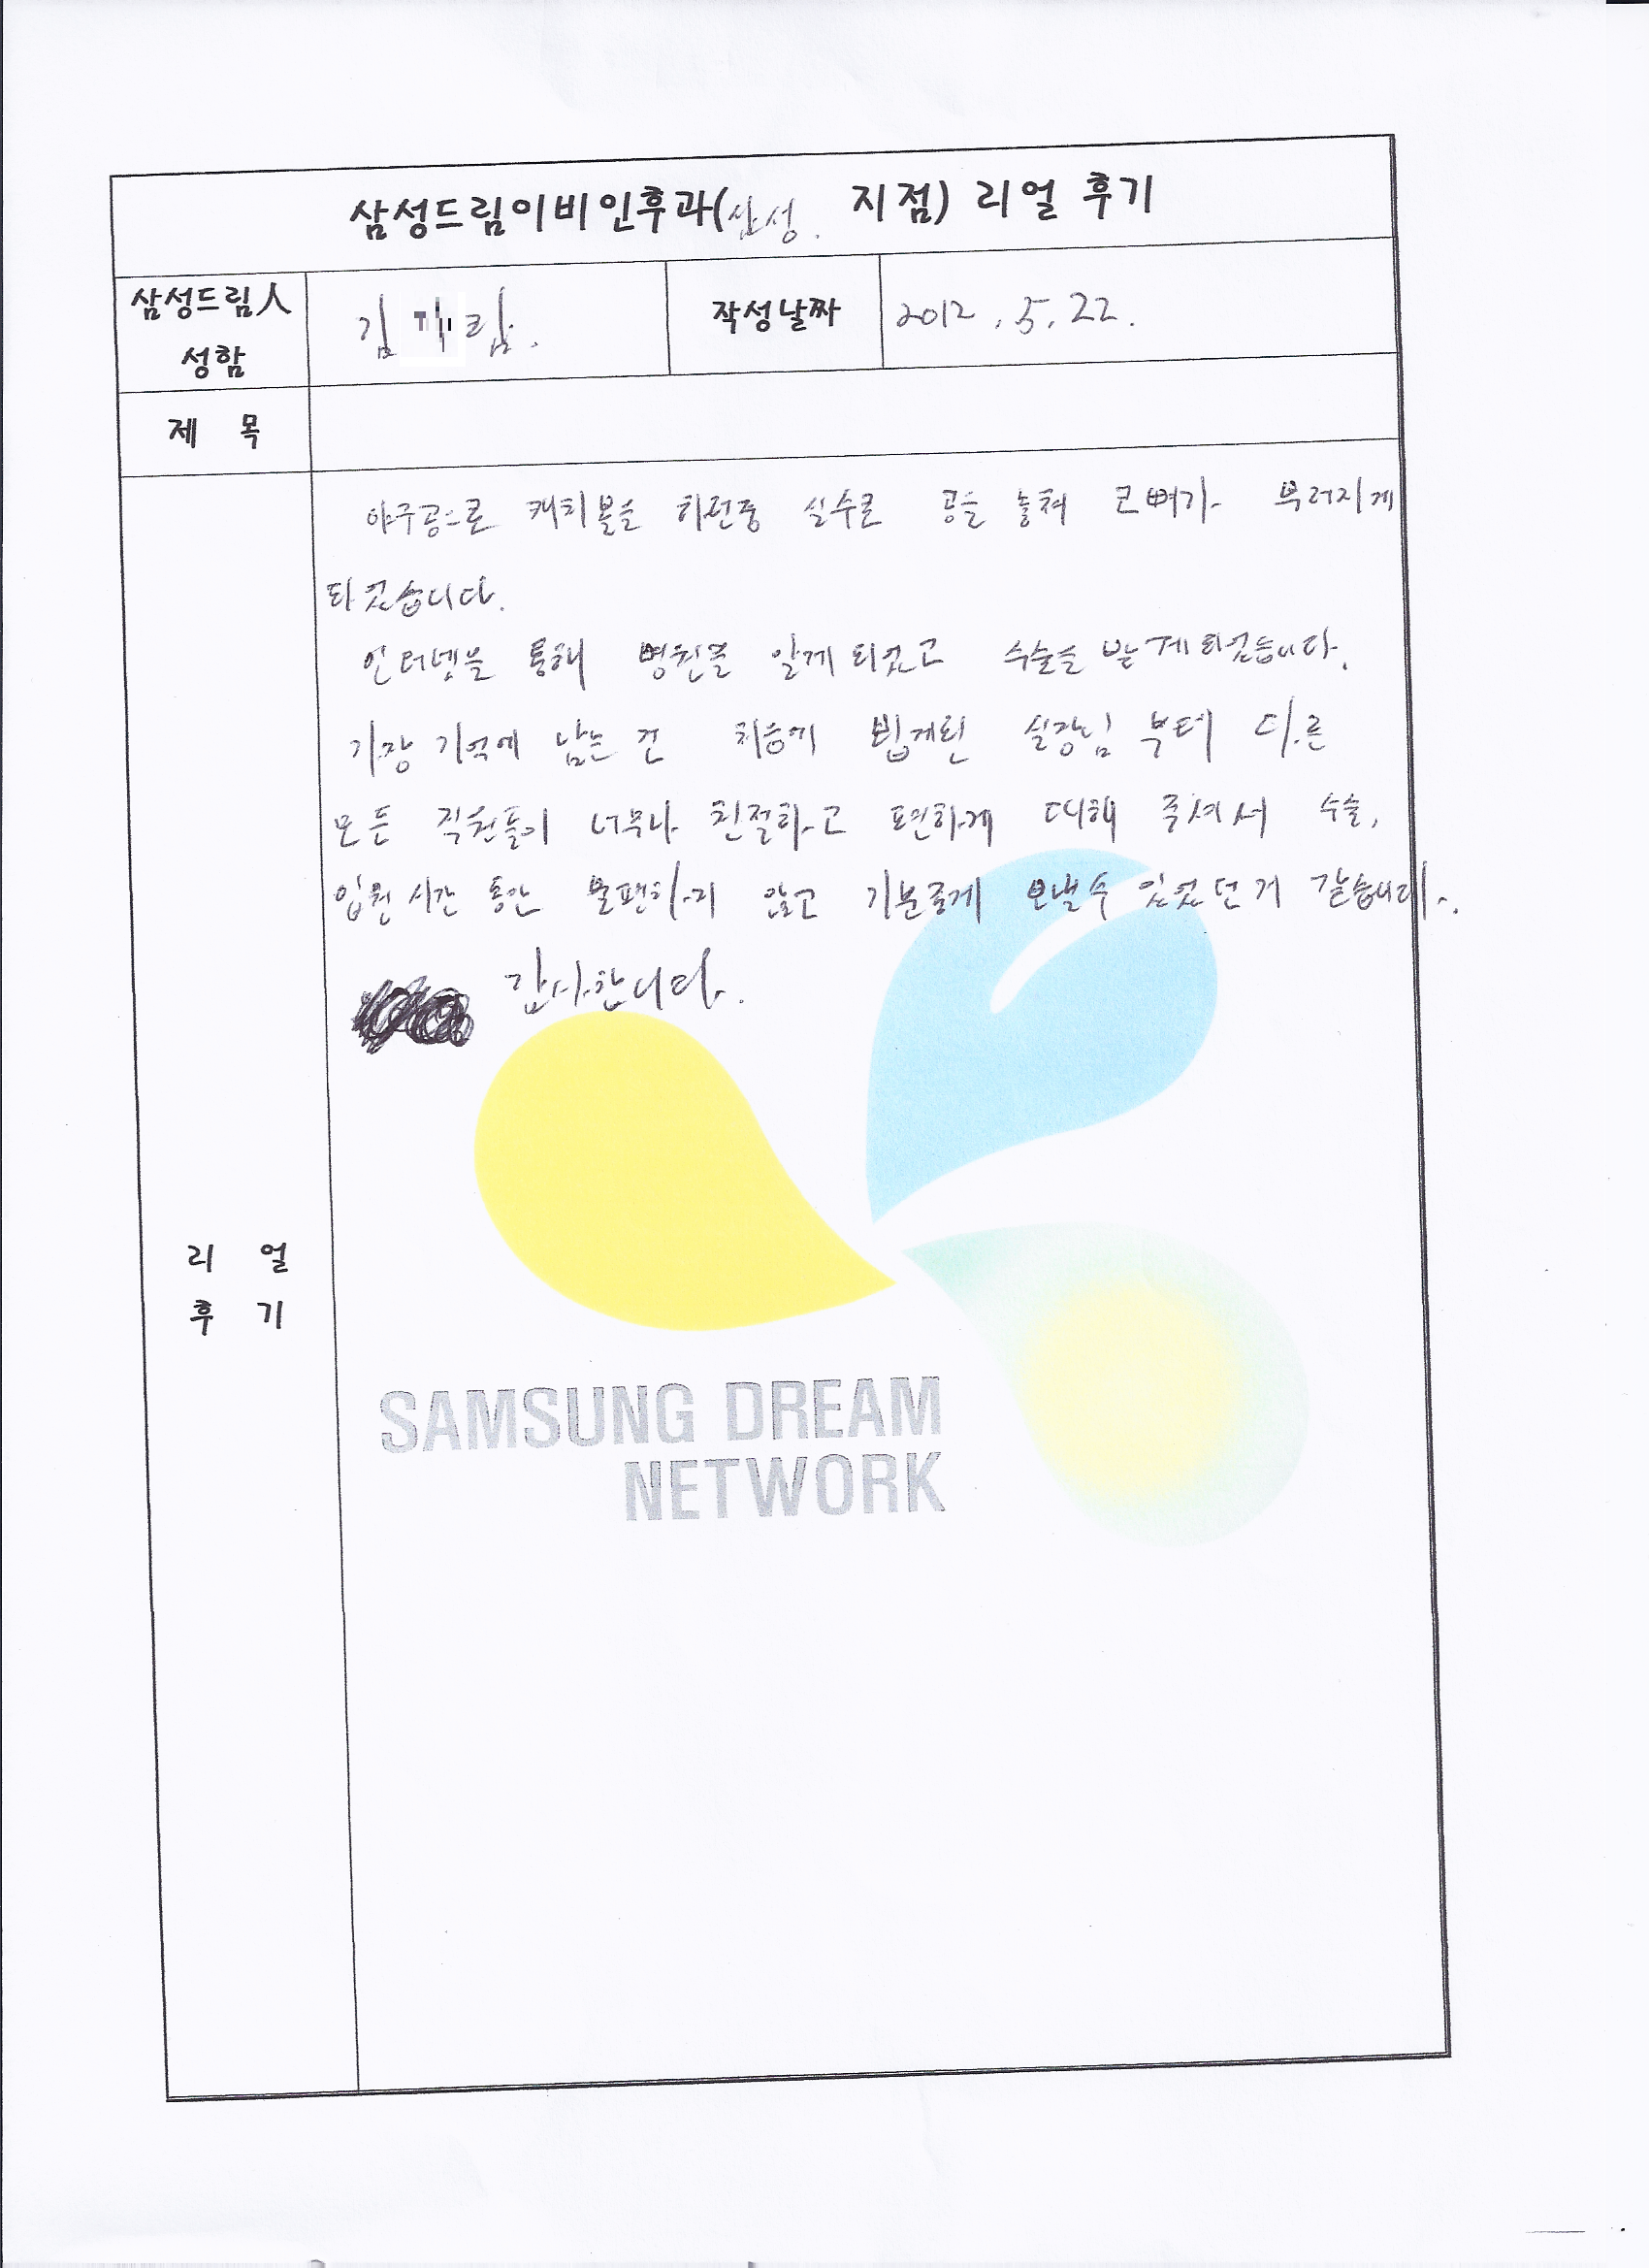 삼성드림이비인후과(삼성. 지점) 리얼 후기
삼성드림人
성함
김
작성날짜
2012. 5. 22.
제 목
야구공으로 캐치볼을 하던중 실수로 공을 놓쳐 코뼈가 부러지게
되었습니다.
인터넷을 통해 병원을 알게 되었고 수술을 받게 되었습니다.
가장 기억에 남는 건 처음에 뵙게된 실장님 부터 다른
모든 직원들이 너무나 친절하고 편하게 대해 주셔서 수술,
입원 시간 동안 불편하지 않고 기분좋게 보낼수 있었던거 같습니다.
감사합니다.
리 얼
후 기
SAMSUNG DREAM
NETWORK